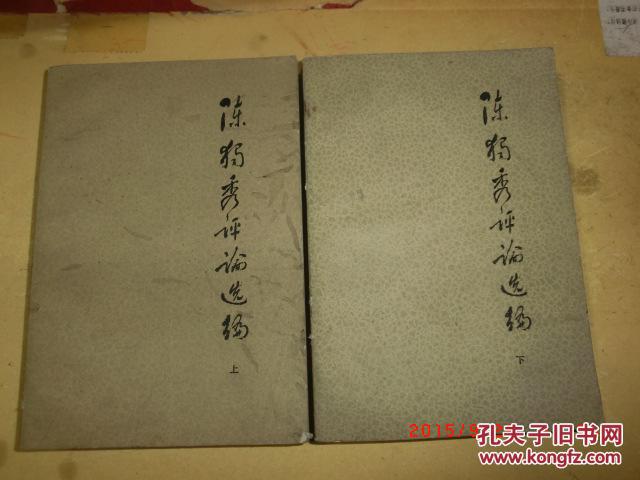 陈独秀评论选编
上
陈独秀评论选编
下
孔夫子旧书网
www.kongfz.com